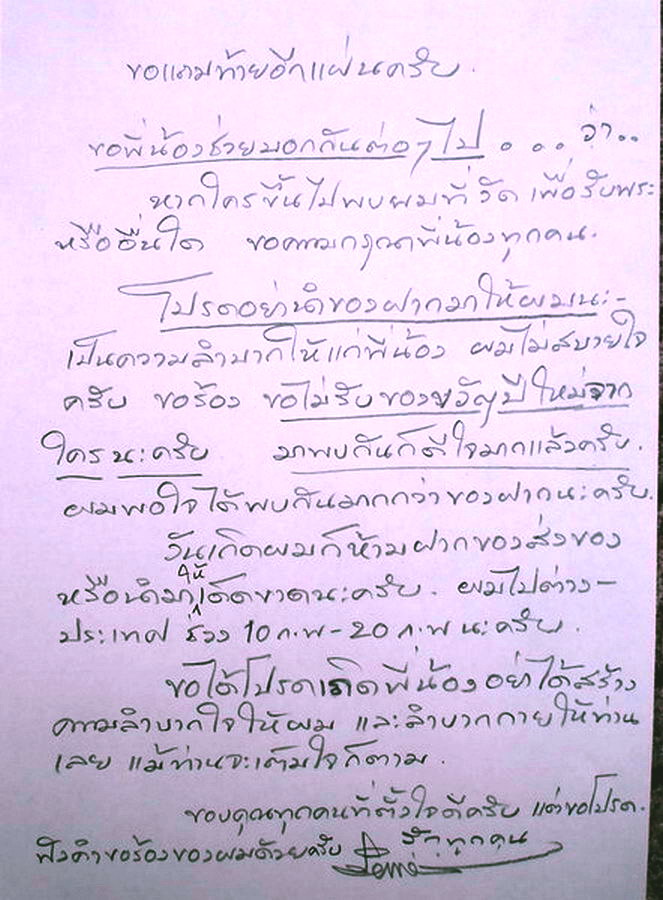 ขอแถมท้ายอีกแผ่นครับ.
ขอพี่น้องช่วยบอกกันต่อๆไป . . . ว่า..
หากใครขึ้นไปพบผมที่วัด เพื่อรับพระ
หรืออื่นใด ขอความกรุณาพี่น้องทุกคน.
โปรดอย่านำของฝากมาให้ผมนะ-
เป็นความลำบากให้แก่พี่น้อง ผมไม่สบายใจ
ครับ ขอร้อง ขอไม่รับของขวัญปีใหม่จาก
ใครนะครับ มาพบกันก็ดีใจมากแล้วครับ.
ผมพอใจได้พบกันมากกว่าของฝากนะครับ.
วันเกิดผมก็ห้ามฝากของส่งของ
หรือนำมาให้เด็ดขาดนะครับ. ผมไปต่าง-
ประเทศ ช่วง 10 ก.พ - 20 ก.พ นะครับ.
ขอได้โปรดเถิดพี่น้องอย่าได้สร้าง
ความลำบากใจให้ผม และลำบากกายให้ท่าน
เลย แม้ท่านจะเต็มใจก็ตาม.
ขอบคุณทุกคนที่ตั้งใจดีครับ แต่ขอโปรด.
ฟังคำขอร้องของผมด้วยครับ รักทุกคน